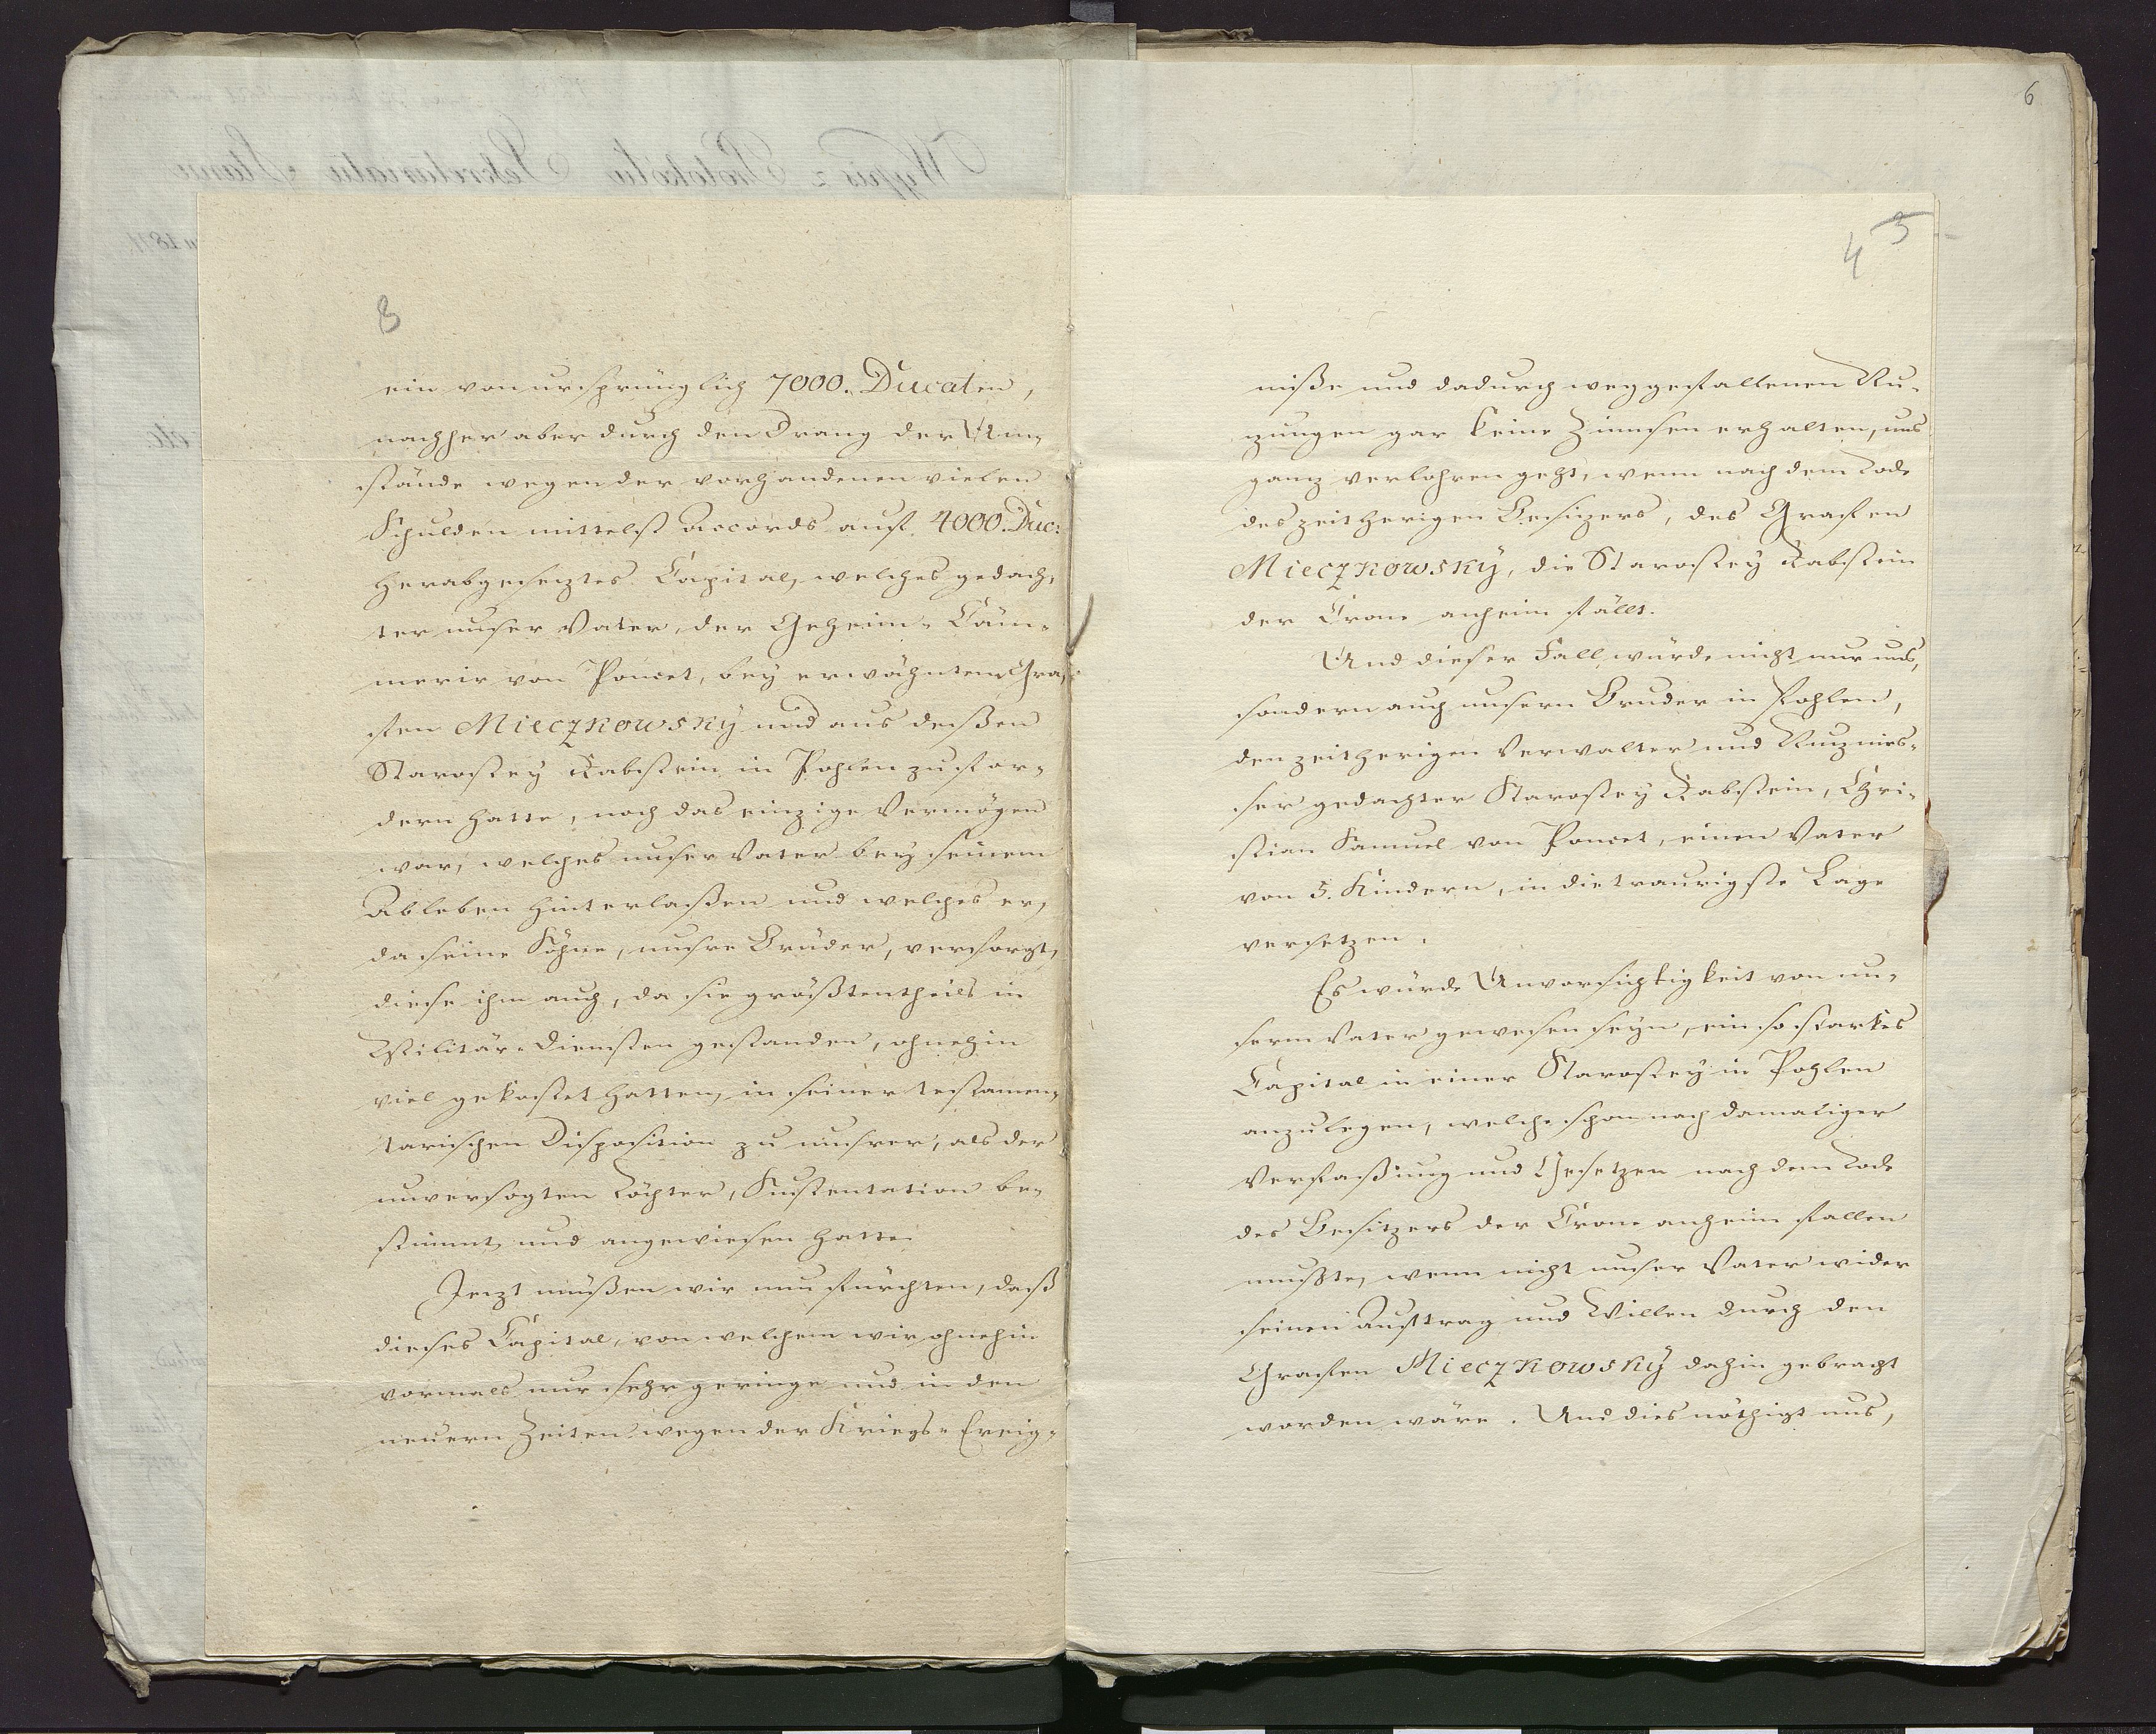 8
ein von ursprünglich 7000. Ducaten,
nachher aber durch den Drang der Um-
stände wegen der vorhandenen vielen
Schulden mittelst accords auf 4000. Duc:
herabgesetztes Capital, welches gedach-
ter unser Vater, der Geheim-Cäm-
merir von Poncet, bey erwähntem Gra-
fen Mieczkowsky und aus deßen
Starostey Rabstein in Pohlen zu for-
dern hatte, noch das einzige Vermögen
war, welches unser Vater bey seinem
Ableben hinterlaßen und welches er,
da seine Söhne, unsre Brüder, versorgt,
diese ihm auch, da sie größtentheils in
Militär-Diensten gestanden, ohnehin
viel gekostet hatten, in seiner testamen-
tarischen Disposition zu unsrer, als der
unversogten Töchter, Sustentation be-
stimmt und angewiesen hatte.
Jezt müßen wir nun fürchten, daß
dieses Capital, von welchem wir ohnehin
vormals nur sehr geringe und in den
neuern Zeiten wegen der Kriegs-Ereig-
6
4 3
niße und dadurch weggefallenen Nu-
zungen gar keine Zinnsen erhalten, uns
ganz verlohren geht, wenn nach dem Tode
des zeitherigen Besizers, des Grafen
Mieczkowsky, die Starostey Rabstein
der Crone anheim fällt.
Und dieser Fall würde nicht nur uns,
sondern auch unsern Bruder in Pohlen,
den zeitherigen Verwalter und Nuznies-
ser gedachter Starostey Rabstein, Chri-
stian Samuel von Poncet, einen Vater
von 5. Kindern, in die traurigste Lage
versetzen.
Es würde Unvorsichtigkeit von un-
serm Vater gewesen seyn, ein so starkes
Capital in einer Starostey in Pohlen
anzulegen, welche schon nach damaliger
Verfaßung und Gesetzen nach dem Tode
des Besitzers der Crone anheim fallen
mußte, wenn nicht unser Vater wider
seinen Auftrag und Willen durch den
Grafen Mieczkowsky dahin gebracht
worden wäre. Und dies nöthigt uns,